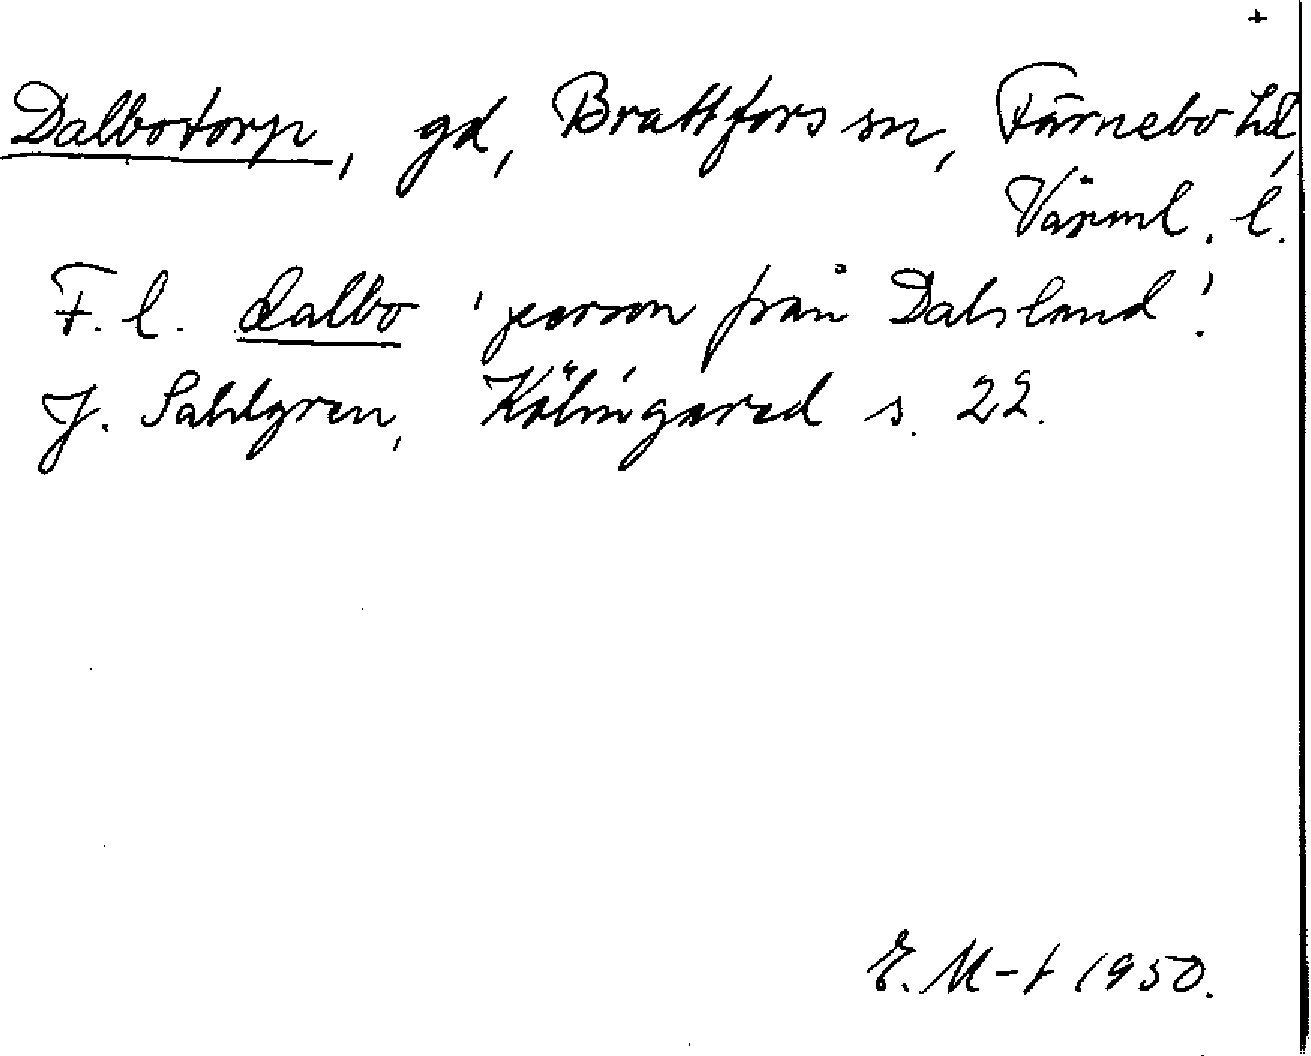 +
Dalbotorp, gd, Brattfors sn, Färnebo hd,
Värml. l.
F. l. dalbo 'person från Dalsland'.
J. Sahlgren, Kölingared s. 22.
E. M-t 1950.